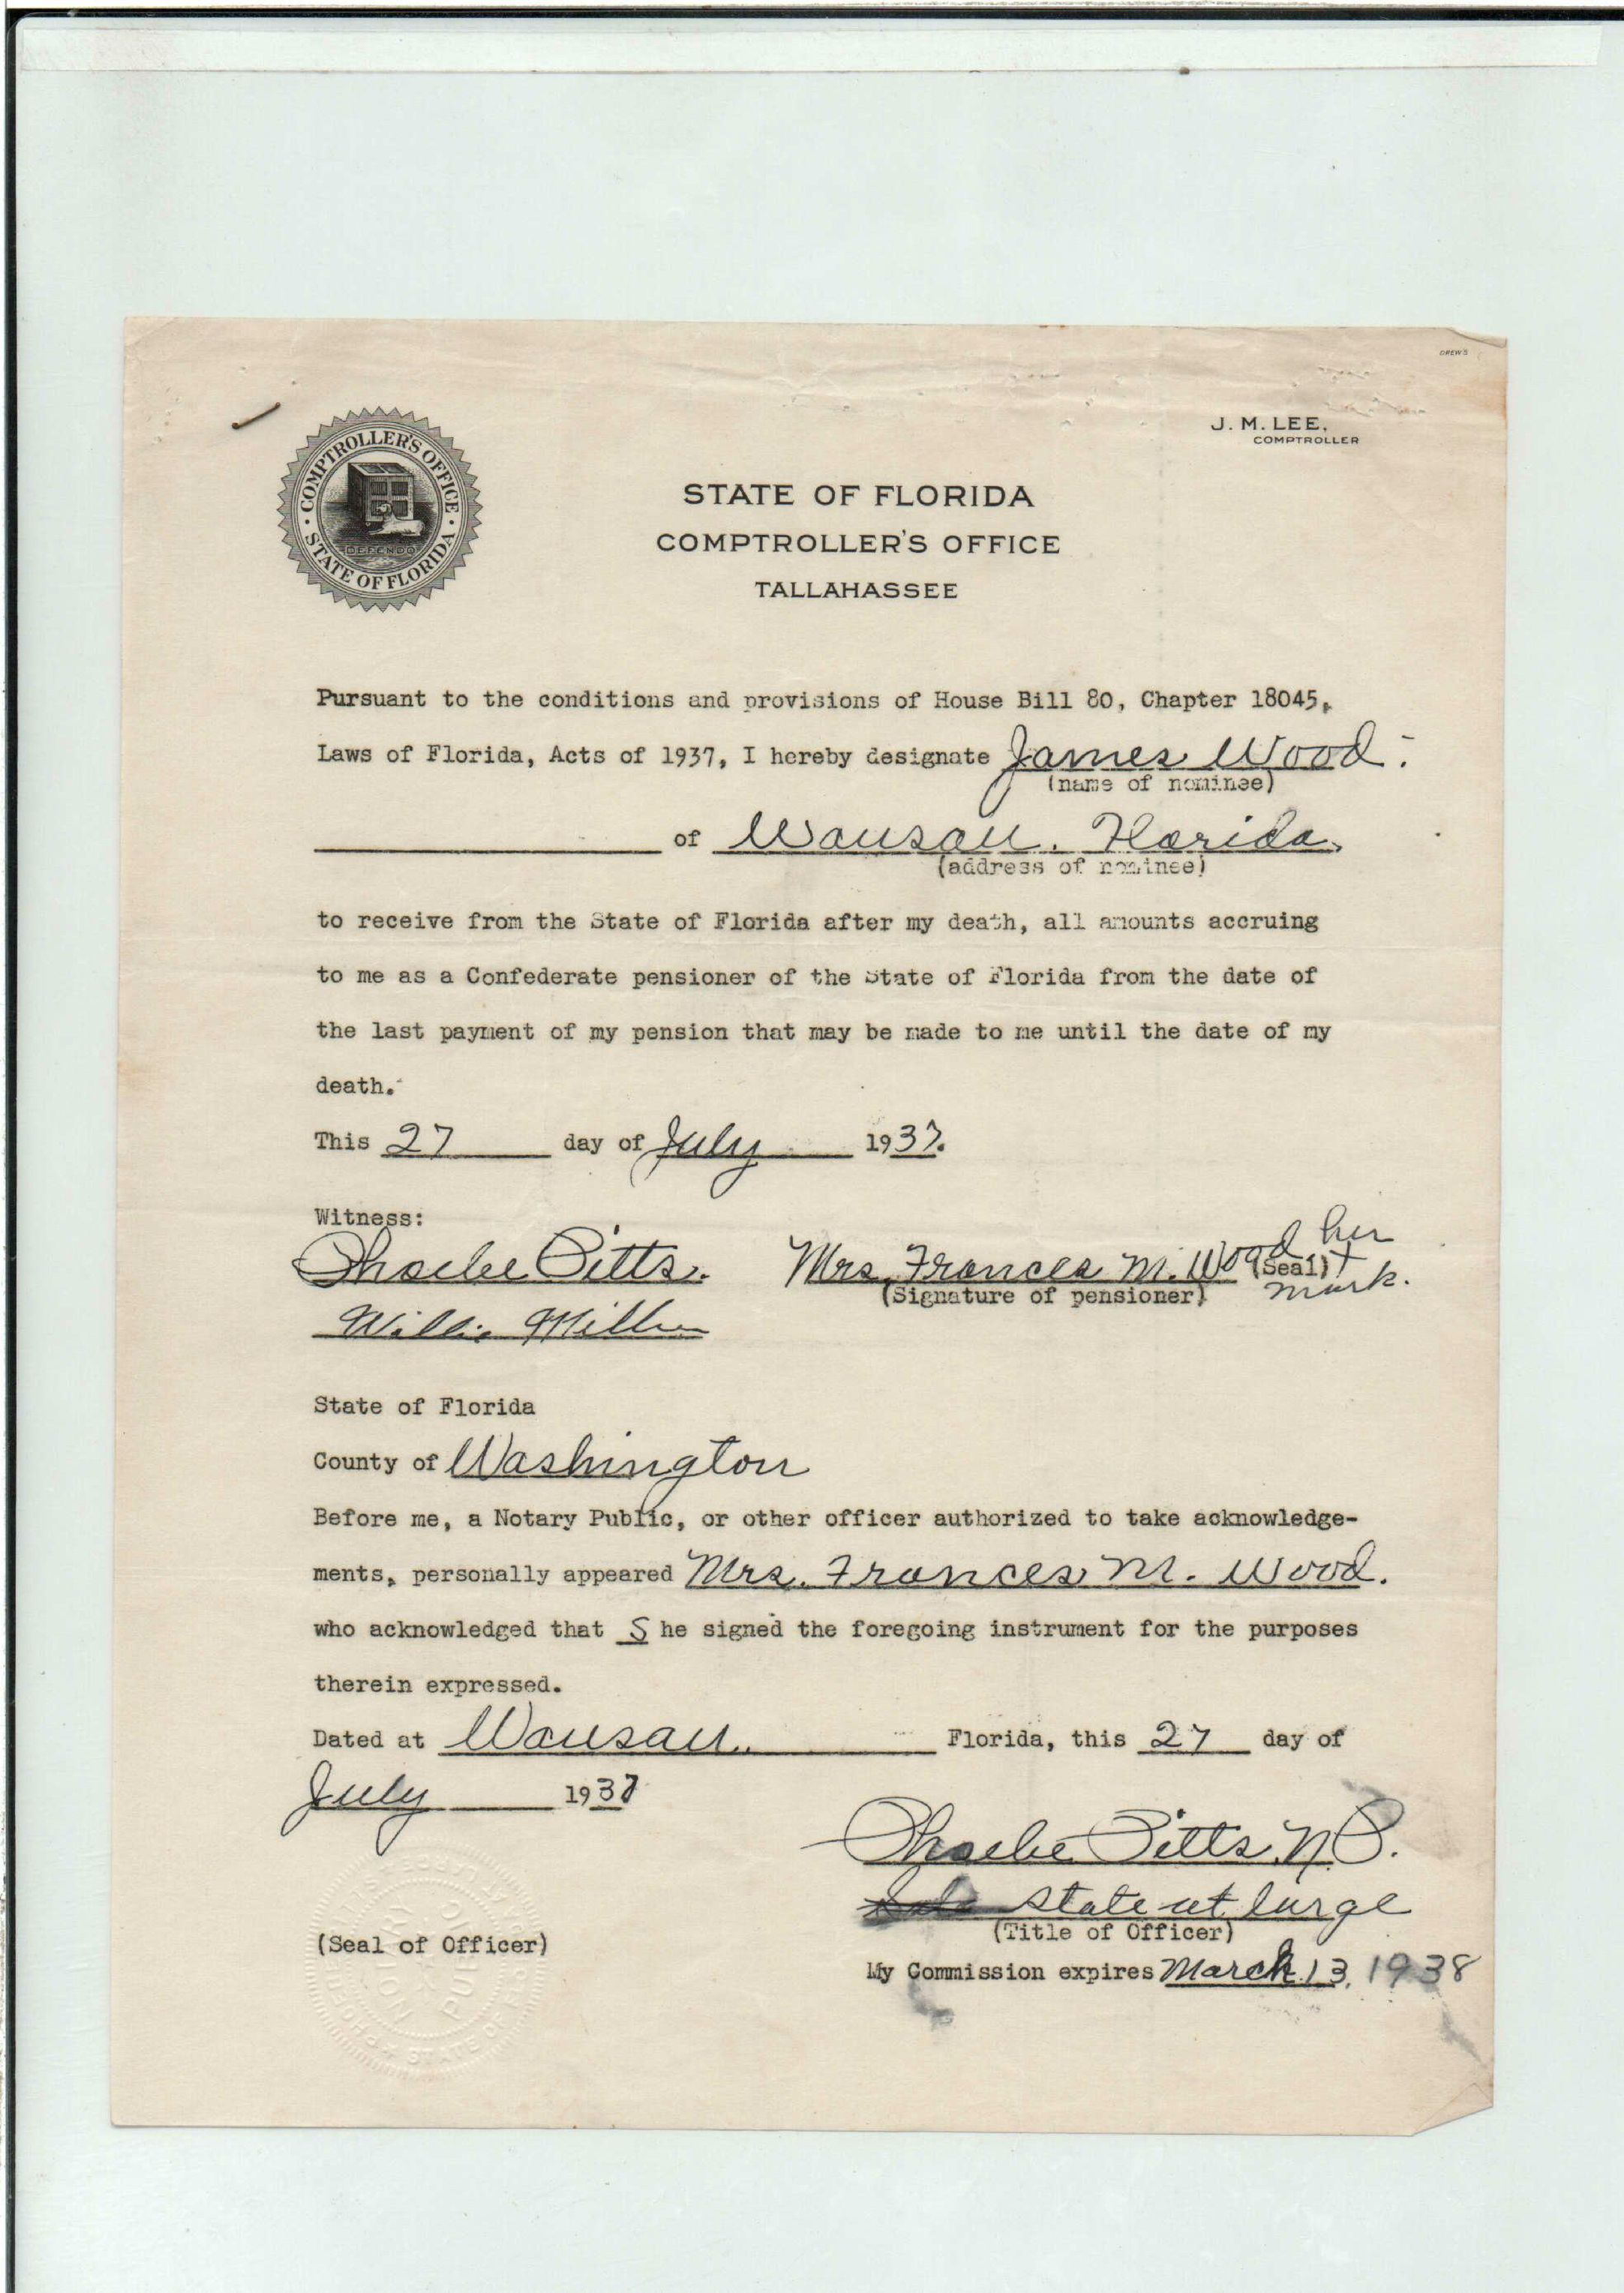 DREWS
J. M. LEE,
COMPTROLLER
COMPTROLLER'S OFFICE · STATE OF FLORIDA ·
DEFENDO
STATE OF FLORIDA
COMPTROLLER'S OFFICE
TALLAHASSEE
Pursuant to the conditions and provisions of House Bill 80, Chapter 18045,
Laws of Florida, Acts of 1937, I hereby designate James Wood.
(name of nominee)
of Wausau, Florida,
(address of nominee)
to receive from the State of Florida after my death, all amounts accruing
to me as a Confederate pensioner of the State of Florida from the date of
the last payment of my pension that may be made to me until the date of my
death.
This 27 day of July 1937.
Witness:
Phoebe Pitts. Mrs. Frances M. Wood (Seal) her x mark.
(Signature of pensioner)
Willie Miller
State of Florida
County of Washington
Before me, a Notary Public, or other officer authorized to take acknowledge-
ments, personally appeared Mrs. Frances M. Wood.
who acknowledged that She signed the foregoing instrument for the purposes
therein expressed.
Dated at Wausau. Florida, this 27 day of
July 1937
Phoebe Pitts, N.P.
State at large
(Title of Officer)
(Seal of Officer)
My Commission expires March 13, 1938
NOTARY PUBLIC
STATE OF